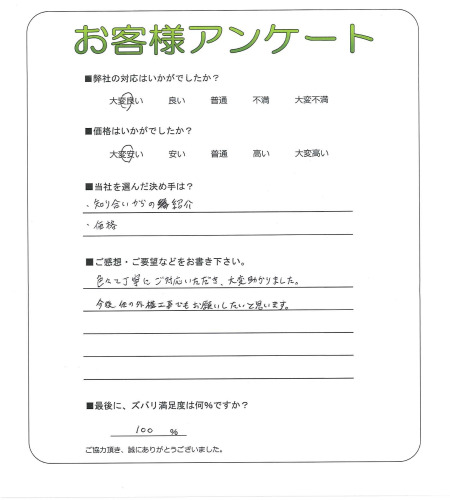 お客様アンケート
■弊社の対応はいかがでしたか？
大変良い 良い 普通 不満 大変不満
■価格はいかがでしたか？
大変安い 安い 普通 高い 大変高い
■当社を選んだ決め手は？
・知り合いからの紹介
・価格
■ご感想・ご要望などをお書き下さい。
色々と丁寧にご対応いただき、大変助かりました。
今後他の外構工事でもお願いしたいと思います。
■最後に、ズバリ満足度は何％ですか？
100 ％
ご協力頂き、誠にありがとうございました。